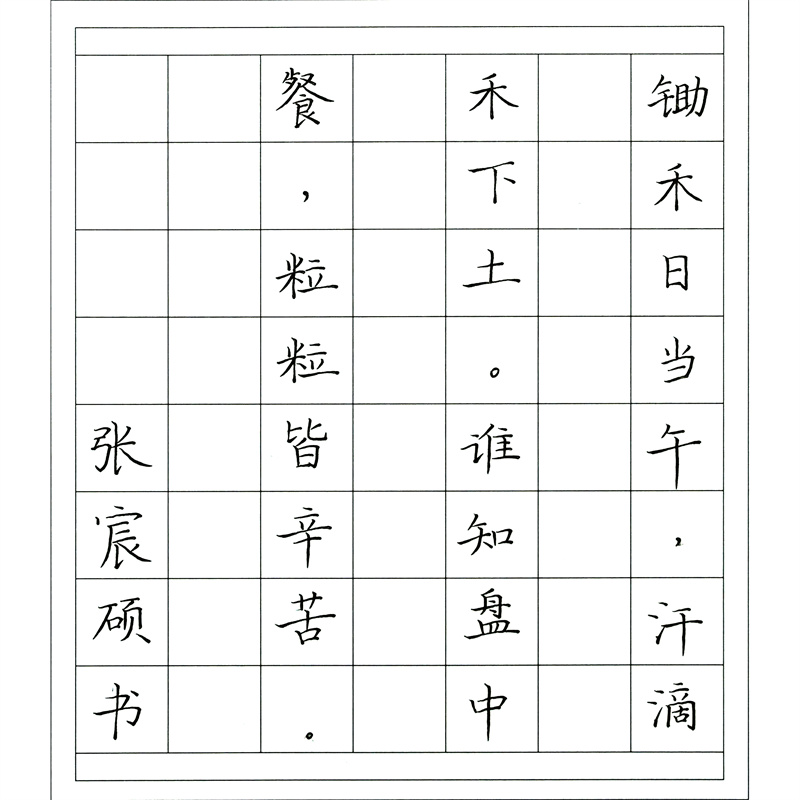 锄禾日当午，汗滴
禾下土。谁知盘中
餐，粒粒皆辛苦。
张宸硕书